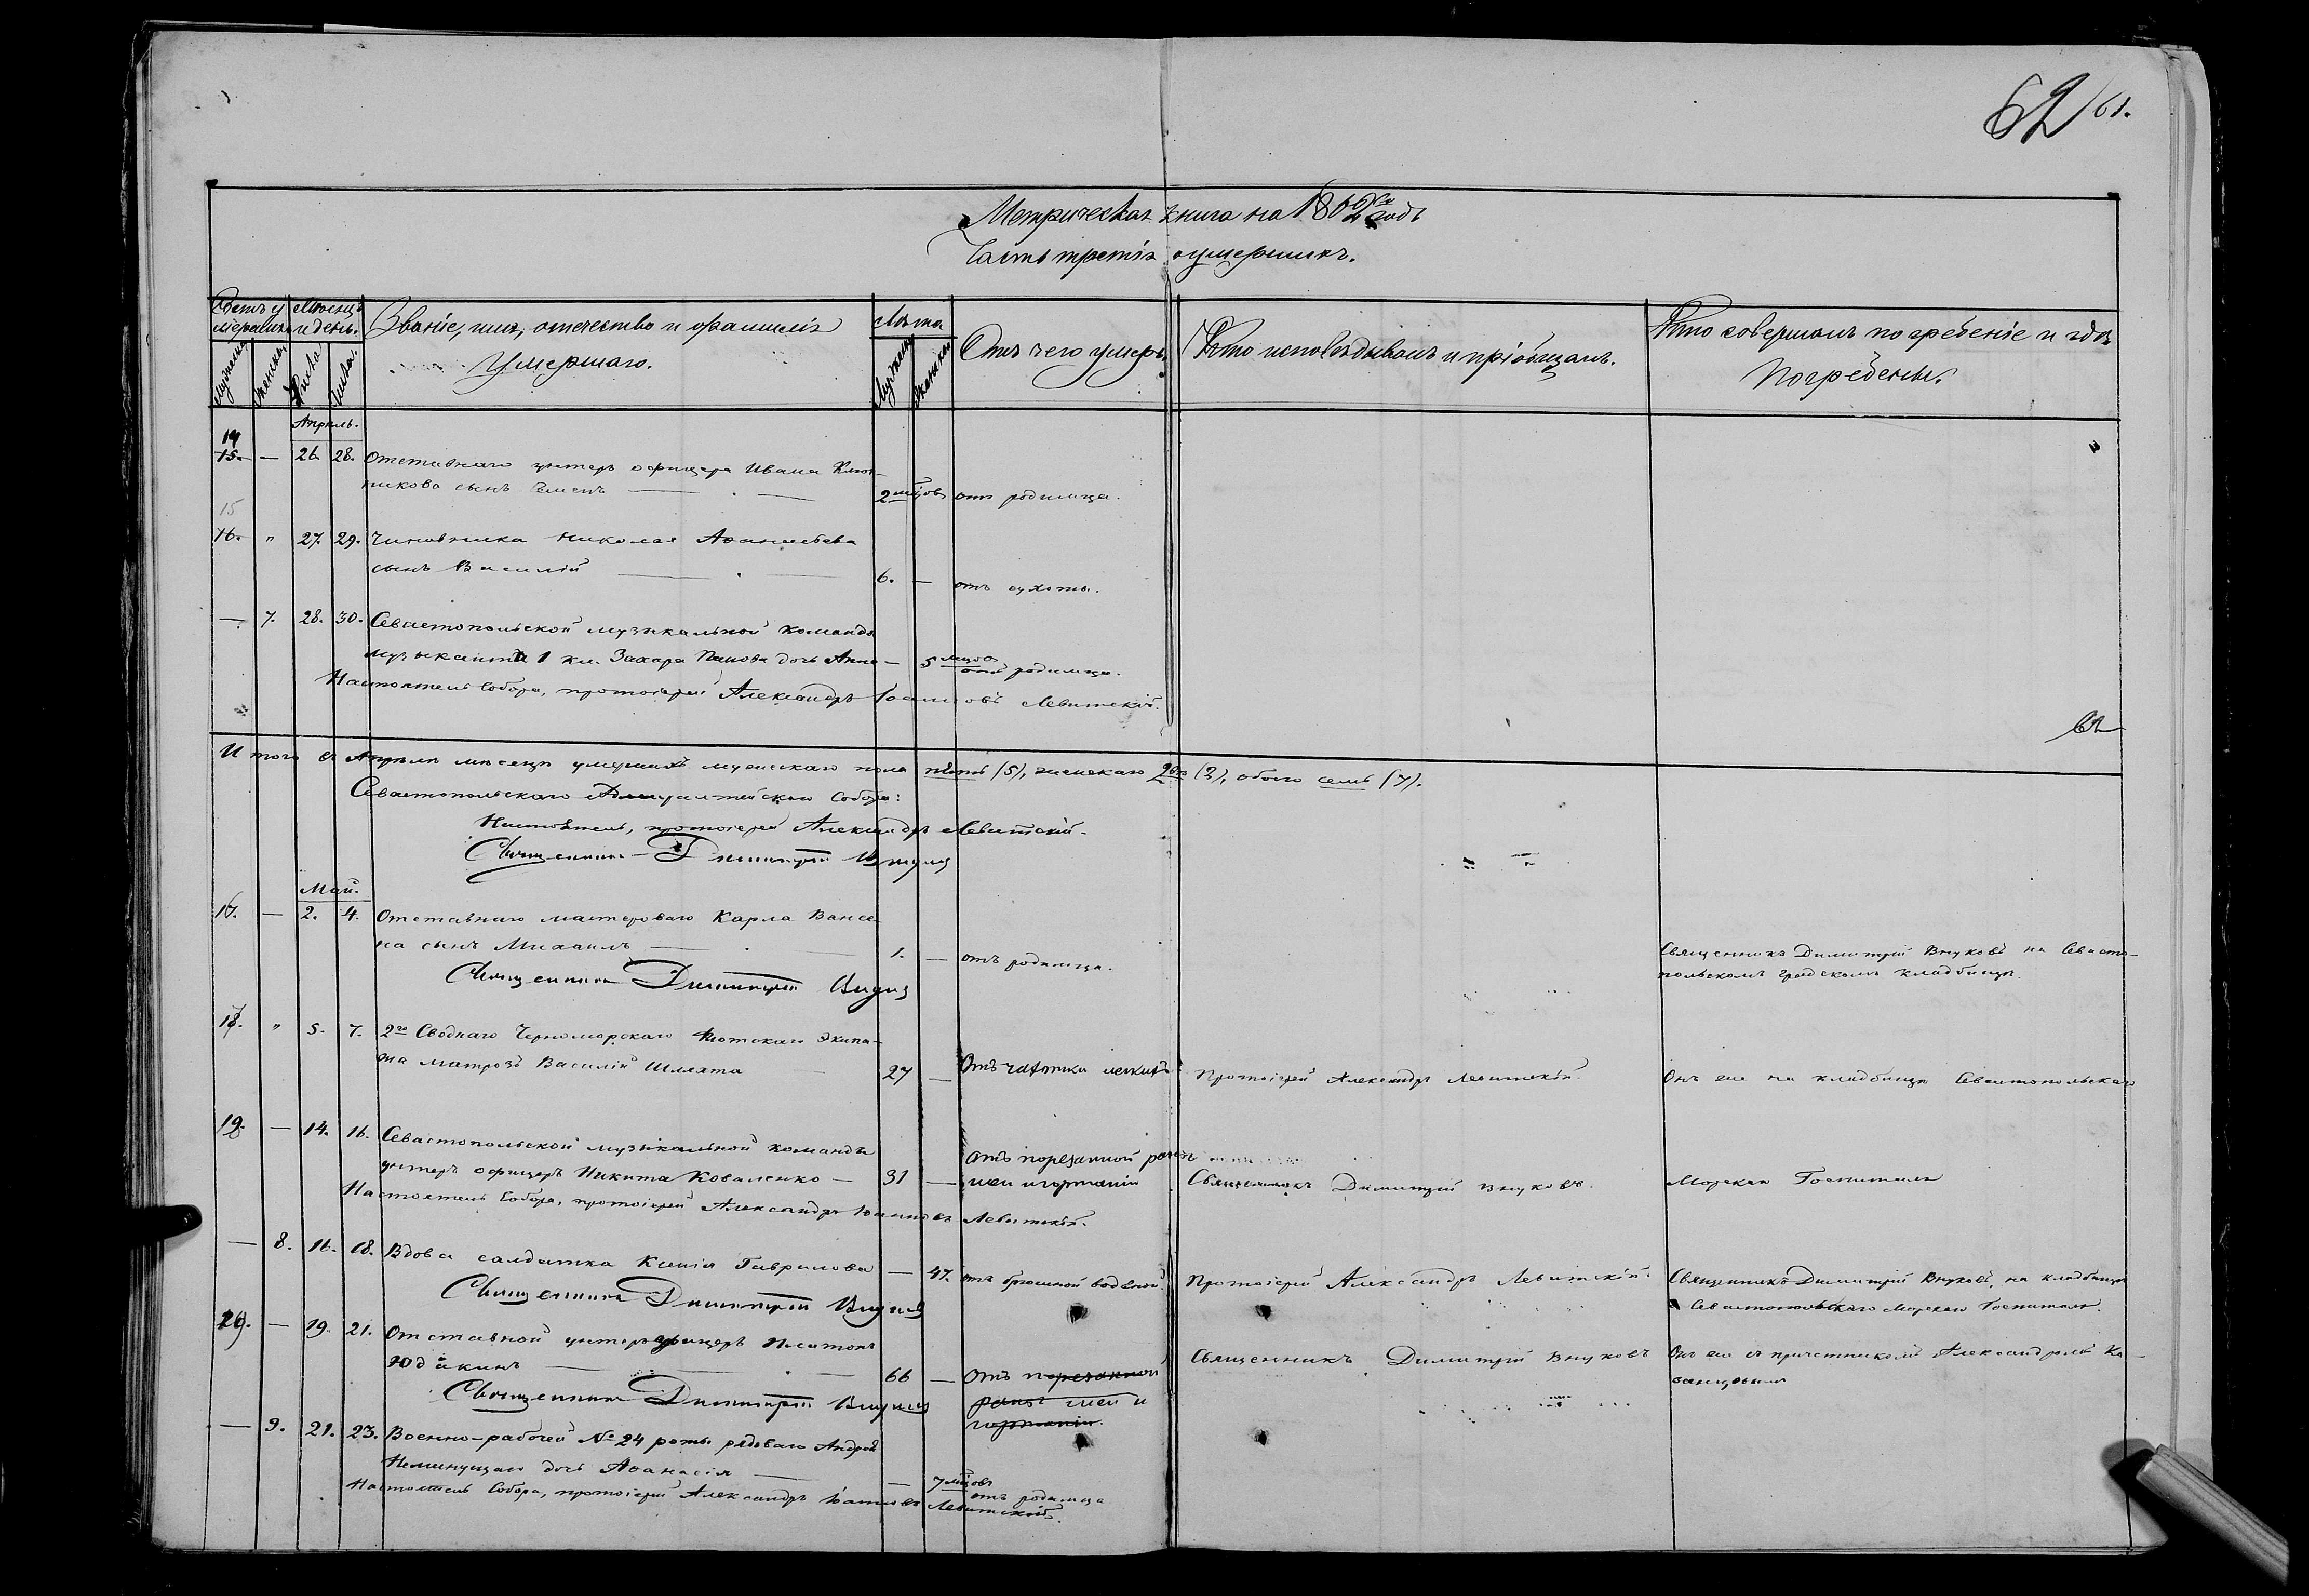 62 61.
Метрическая книга на 1862й годъ
Часть третія о умершихъ.
Счетъ умершихъ
Мѣсяцъ и день.
Званіе, имя, отечество и фамилія умершаго.
Лѣта
Отъ чего умеръ.
Кто исповѣдывалъ и пріобщалъ.
Кто совершалъ погребеніе и гдѣ погребены.
Мужеска Женска
Мужеска Женска
Апрѣль.
14
15. — 26. 28. Отставнаго унтеръ офицера Ивана Ключ-
никова сынъ Семенъ — 2 мѣцовъ отъ родимца.
15
16. " 27. 29. Чиновника Николая Аѳанасьева
сынъ Василій — 6. — отъ сухоты.
— 7. 28. 30. Севастопольской музыкальной команды
музыканта 1 кл. Захара Попова дочь Анна — 5 мцовъ отъ родимца.
Настоятель Собора, протоіерей Александръ Іоанновъ Левитскій.
62
Итого въ Апрѣлѣ мѣсяцѣ умершихъ мужескаго пола пять (5), женскаго два (2), обоего семь (7).
Севастопольскаго Адмиралтейскаго Собора:
Настоятель, протоіерей Александръ Левитскій.
Священникъ Димитрій Внуковъ
Май.
16. — 2. 4. Отставнаго мастероваго Карла
на сынъ Михаилъ — 1. — отъ родимца. Священникъ Димитрій Внуковъ на Севасто-
польскомъ градскомъ кладбищѣ.
Священникъ Димитрій Внуковъ
18. " 5. 7. 2го Своднаго Черноморскаго Флотскаго Экипа-
жа матрозъ Василій Шляхта 27 — Отъ чахотки легкихъ Протоіерей Александръ Левитскій. Онъ же на кладбищѣ Севастопольскаго
19. — 14. 16. Севастопольской музыкальной команды
унтеръ офицеръ Никита Коваленко — 31 — отъ порезанной раны шеи и гортаніи Священникъ Димитрій Внуковъ. Морскаго Госпиталя
Настоятель Собора, протоіерей Александръ Іоанновъ Левитскій.
— 8. 16. 18. Вдова салдатка Ксенія Гаврилова — 47. отъ брюшной водяной. Протоіерей Александръ Левитскій. Священникъ Димитрій Внуковъ, на кладбищѣ
Севастопольскаго Морскаго Госпиталя.
Священникъ Димитрій Внуковъ
20. — 19. 21. Отставной унтеръ офицеръ Платонъ
Юдакинъ — 66 — отъ порезанной Священникъ Димитрій Внуковъ Онъ же съ причетникомъ Александромъ Ка-
занцовымъ
раны шеи и
гортаніи.
Священникъ Димитрій Внуковъ
— 9. 21. 23. Военно-рабочей № 24 роты рядоваго Андрея
Неминущаго дочь Аѳанасія — 7 мѣцовъ отъ родимца
Настоятель Собора, протоіерей Александръ Іоанновъ Левитскій.